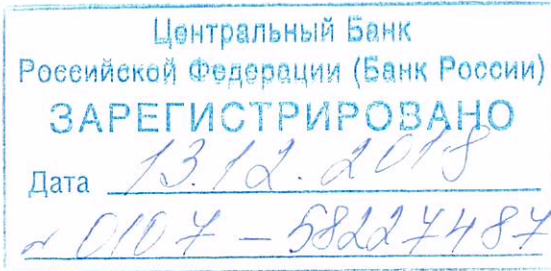 Центральный Банк
Российской Федерации (Банк России)
ЗАРЕГИСТРИРОВАНО
Дата 13.12.2018
№ 0107-58227487